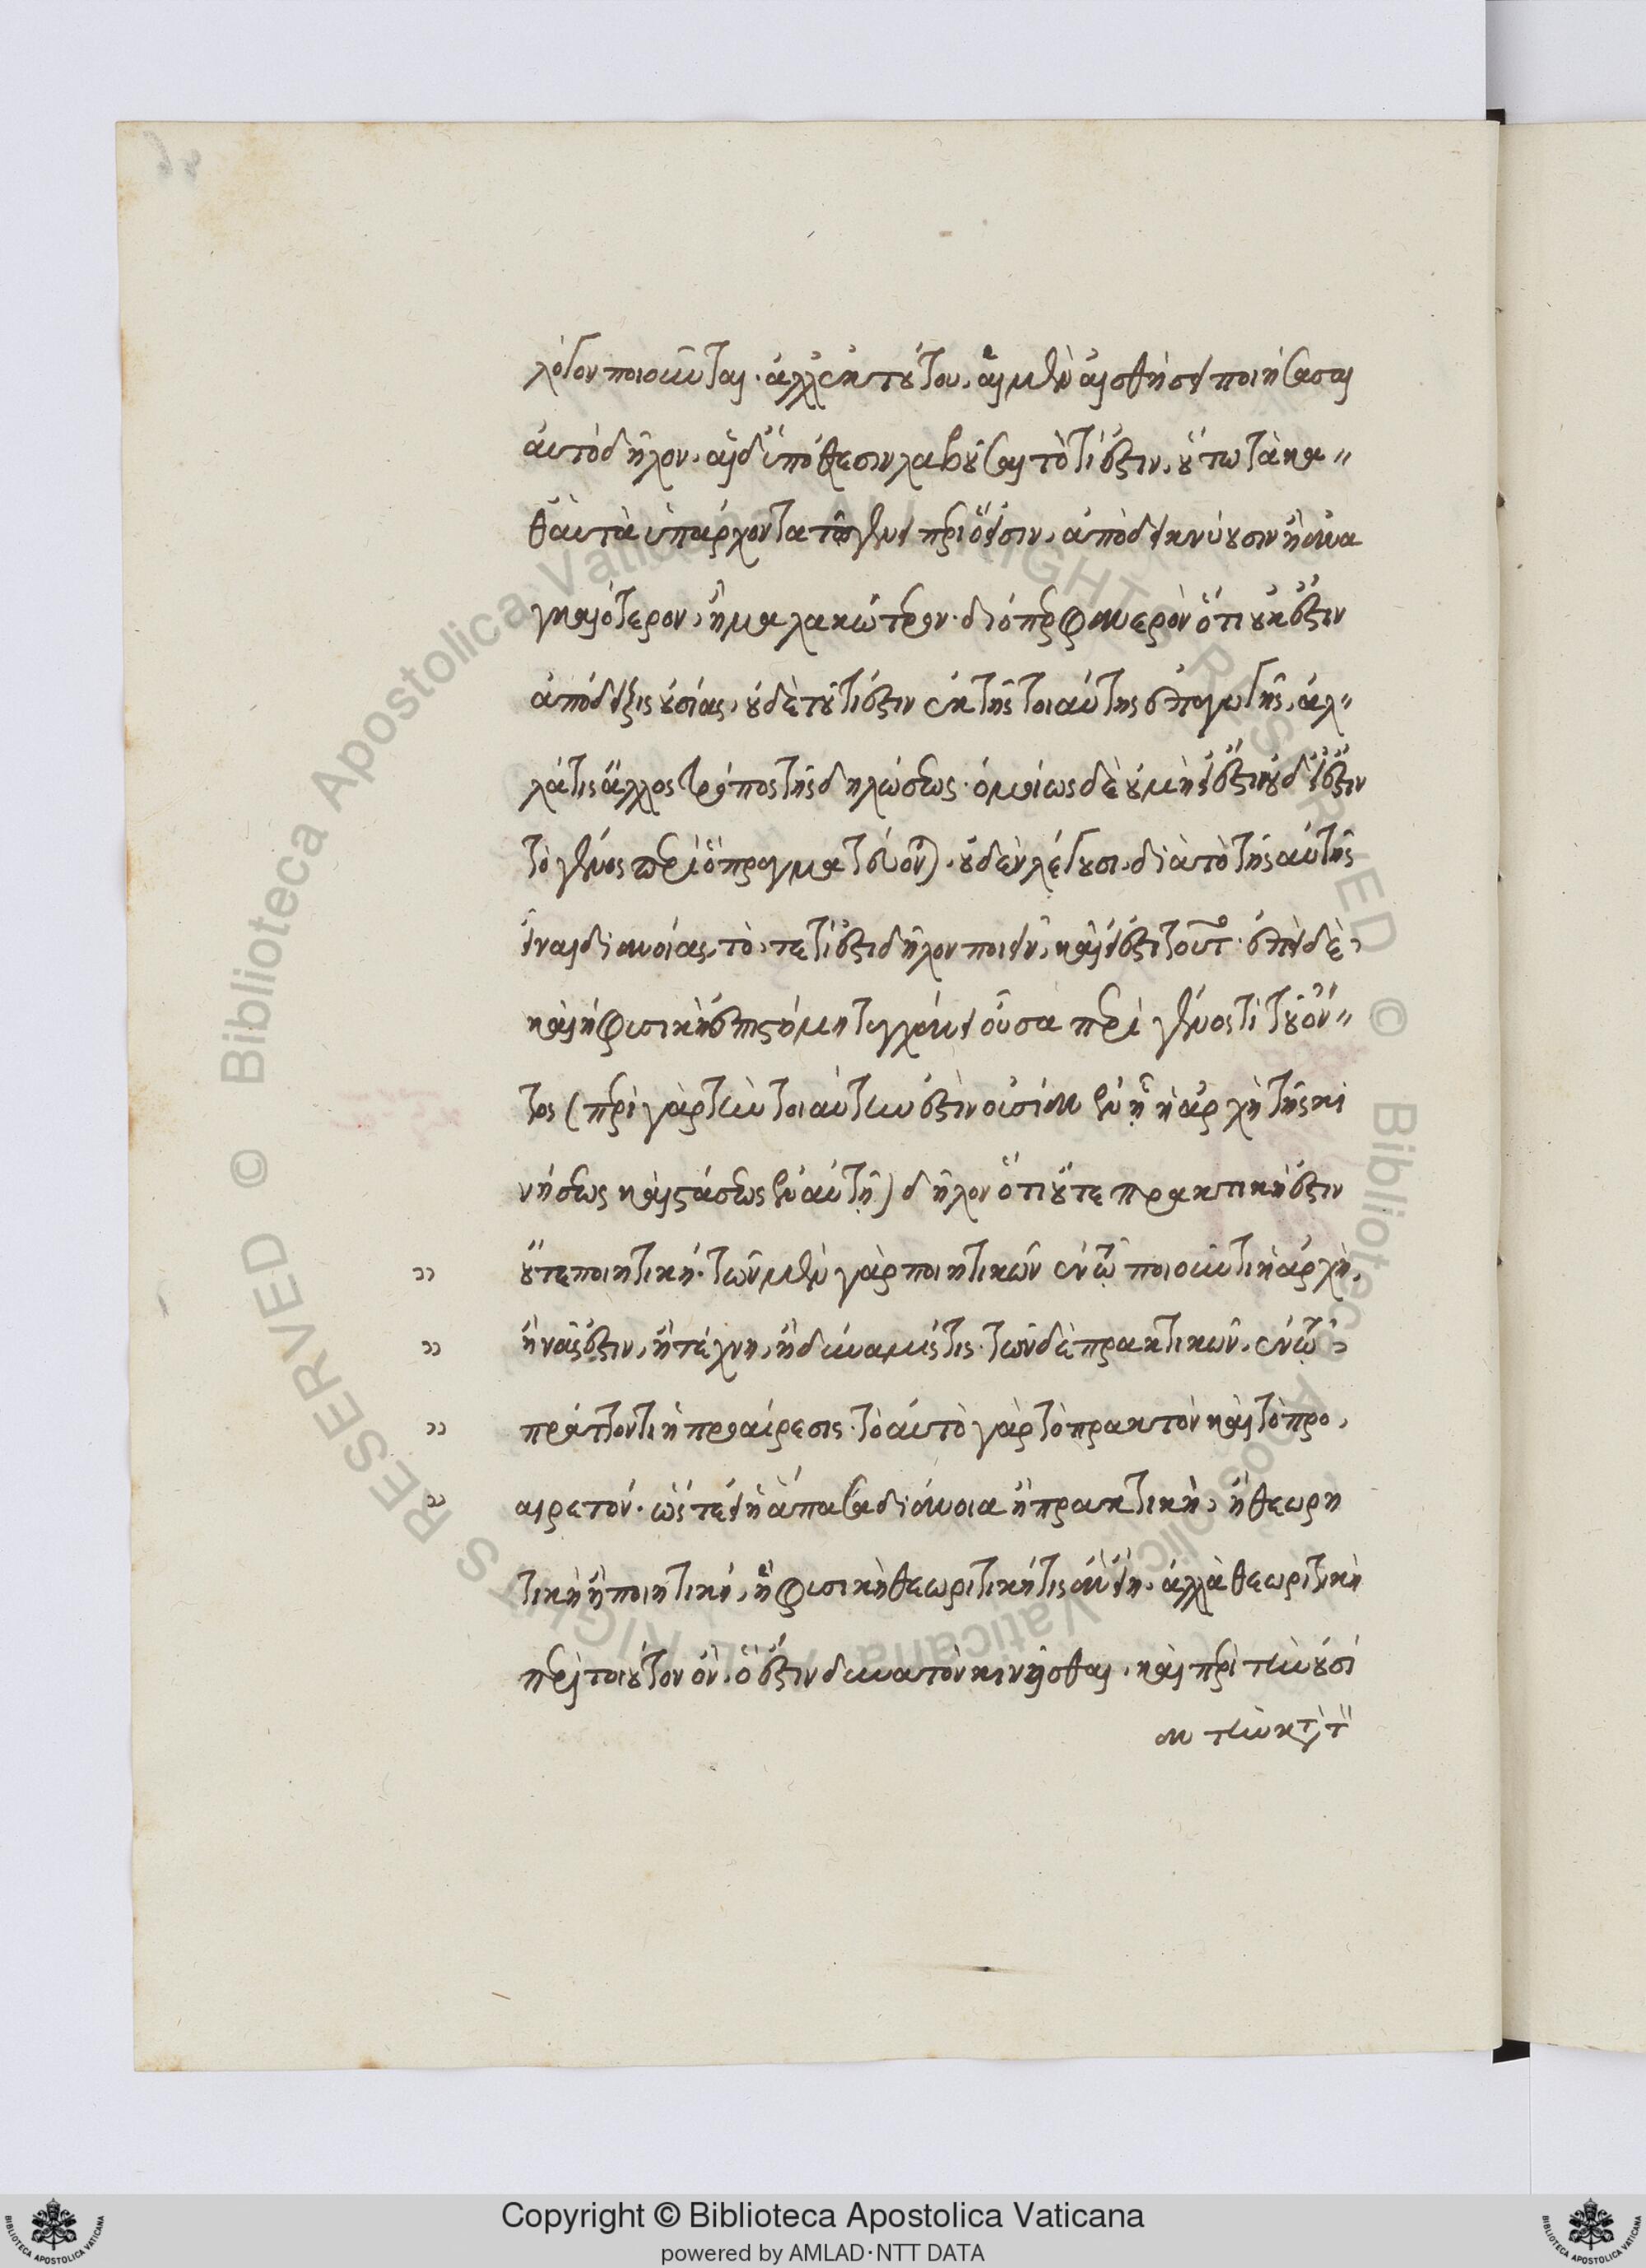 λόγον ποιοῦνται· ἀλλ' ἐκ τούτου, αἱ μὲν αἰσθήσει ποιήσασαι
αὐτὸ δῆλον, αἱ δ' ὑπόθεσιν λαβοῦσαι τὸ τί ἐστιν, οὕτω τὰ κα〃
θ' αὑτὰ ὑπάρχοντα τῷ γένει περὶ ὅ εἰσιν, ἀποδεικνύουσιν ἢ ἀνα
γκαιότερον, ἢ μαλακώτερον· διόπερ φανερὸν ὅτι οὐκ ἔστιν
ἀπόδειξις οὐσίας, οὐδὲ τοῦ τί ἐστιν ἐκ τῆς τοιαύτης ἐπαγωγῆς, ἀλ〃
λά τις ἄλλος τρόπος τῆς δηλώσεως· ὁμοίως δὲ οὐ μὴ εἰ ἔστιν οὐδ' εἰ ἔστιν
τὸ γένος περὶ ὃ πραγματεύονται, οὐδὲν λέγουσι, διὰ τὸ τῆς αὐτῆς
εἶναι διανοίας, τό, τε τί ἐστι δῆλον ποιεῖν, καὶ εἰ ἔστι τοῦτο· ἐπεὶ δὲ,
καὶ ἡ φυσικὴ ἐπιστήμη τυγχάνει οὖσα περὶ γένος τι τοῦ ὄν〃
τος (περὶ γὰρ τὴν τοιαύτην ἐστὶν οὐσίαν ἐν ᾗ ἡ ἀρχὴ τῆς κι
νήσεως καὶ στάσεως ἐν αὐτῇ) δῆλον ὅτι οὔτε πρακτική ἐστιν
οὔτε ποιητική· τῶν μὲν γὰρ ποιητικῶν ἐν τῷ ποιοῦντι ἡ ἀρχή,
ἢ νοῦς ἐστιν, ἢ τέχνη, ἢ δύναμίς τις· τῶν δὲ πρακτικῶν, ἐν τῷ
πράττοντι ἡ προαίρεσις· τὸ αὐτὸ γὰρ τὸ πρακτὸν καὶ τὸ προ,
αιρετόν· ὥστε εἰ ἡ ἅπασα διάνοια ἢ πρακτική, ἢ θεωρη
τικὴ ἢ ποιητική, ἡ φυσικὴ θεωριτική τις ἂν εἴη, ἀλλὰ θεωριτικὴ
περὶ τοιοῦτον ὄν, ὅ ἐστιν δυνατὸν κινεῖσθαι, καὶ περὶ τὴν οὐσί
αν τὴν κατὰ τ